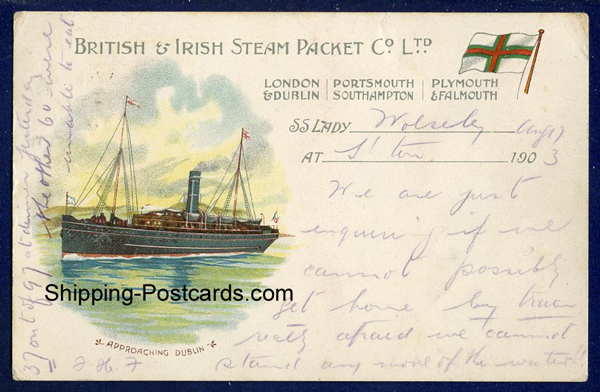 BRITISH & IRISH STEAM PACKET CO LTD
LONDON & DUBLIN | PORTSMOUTH SOUTHAMPTON | PLYMOUTH & FALMOUTH
SS LADY Wolseley Aug 17
AT S'ton 190 3
We are just
enquiring if we
cannot possibly
get home by train
really afraid we cannot
stand any more of the water!!
F. H. F
APPROACHING DUBLIN
37 out of 97 at dinner yesterday
the other 60 were
unable to eat
Shipping-Postcards.com